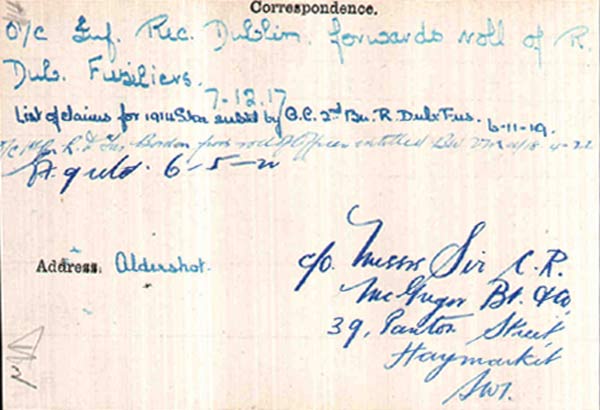 Correspondence.
O/c Inf. Rec. Dublin. forwards roll of R.
Dub. Fusiliers.
7-12.17
List of claims for 1914 Star subtd by O.C. 2nd Bn. R. Dub. Fus. 6-11-19.
O/c 1st Bn R. D Fus Bordon fwds roll of Officers entitled BW 4-22
6-5-20
Address: Aldershot.
c/o. Messrs Sir C.R.
McGrigor Bt. & Co,
39, Panton Street
Haymarket
SW1.